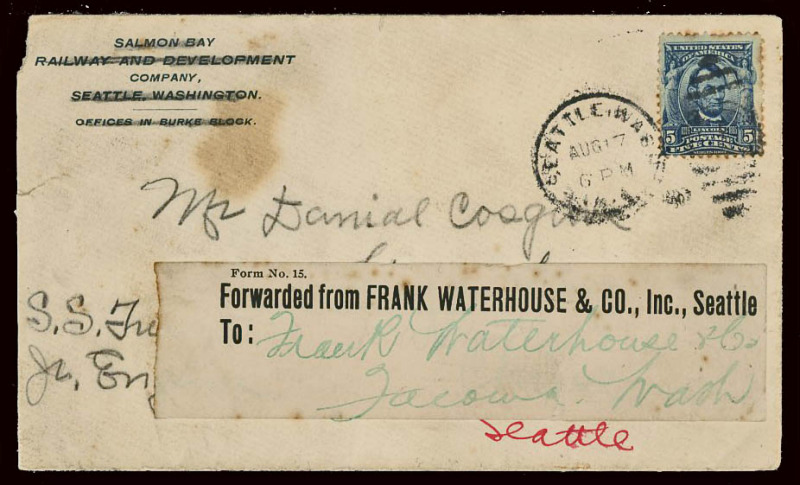 SALMON BAY
RAILWAY AND DEVELOPMENT
COMPANY,
SEATTLE, WASHINGTON.
OFFICES IN BURKE BLOCK.
UNITED STATES
OF AMERICA
LINCOLN
5 POSTAGE 5
FIVE CENTS
SEATTLE, WASH
AUG 17
6 PM
Mr Danial
Form No. 15.
Forwarded from FRANK WATERHOUSE & CO., Inc., Seattle
To: Frank Waterhouse & Co
S.S.
Tacoma. Wash
Jr.
Seattle